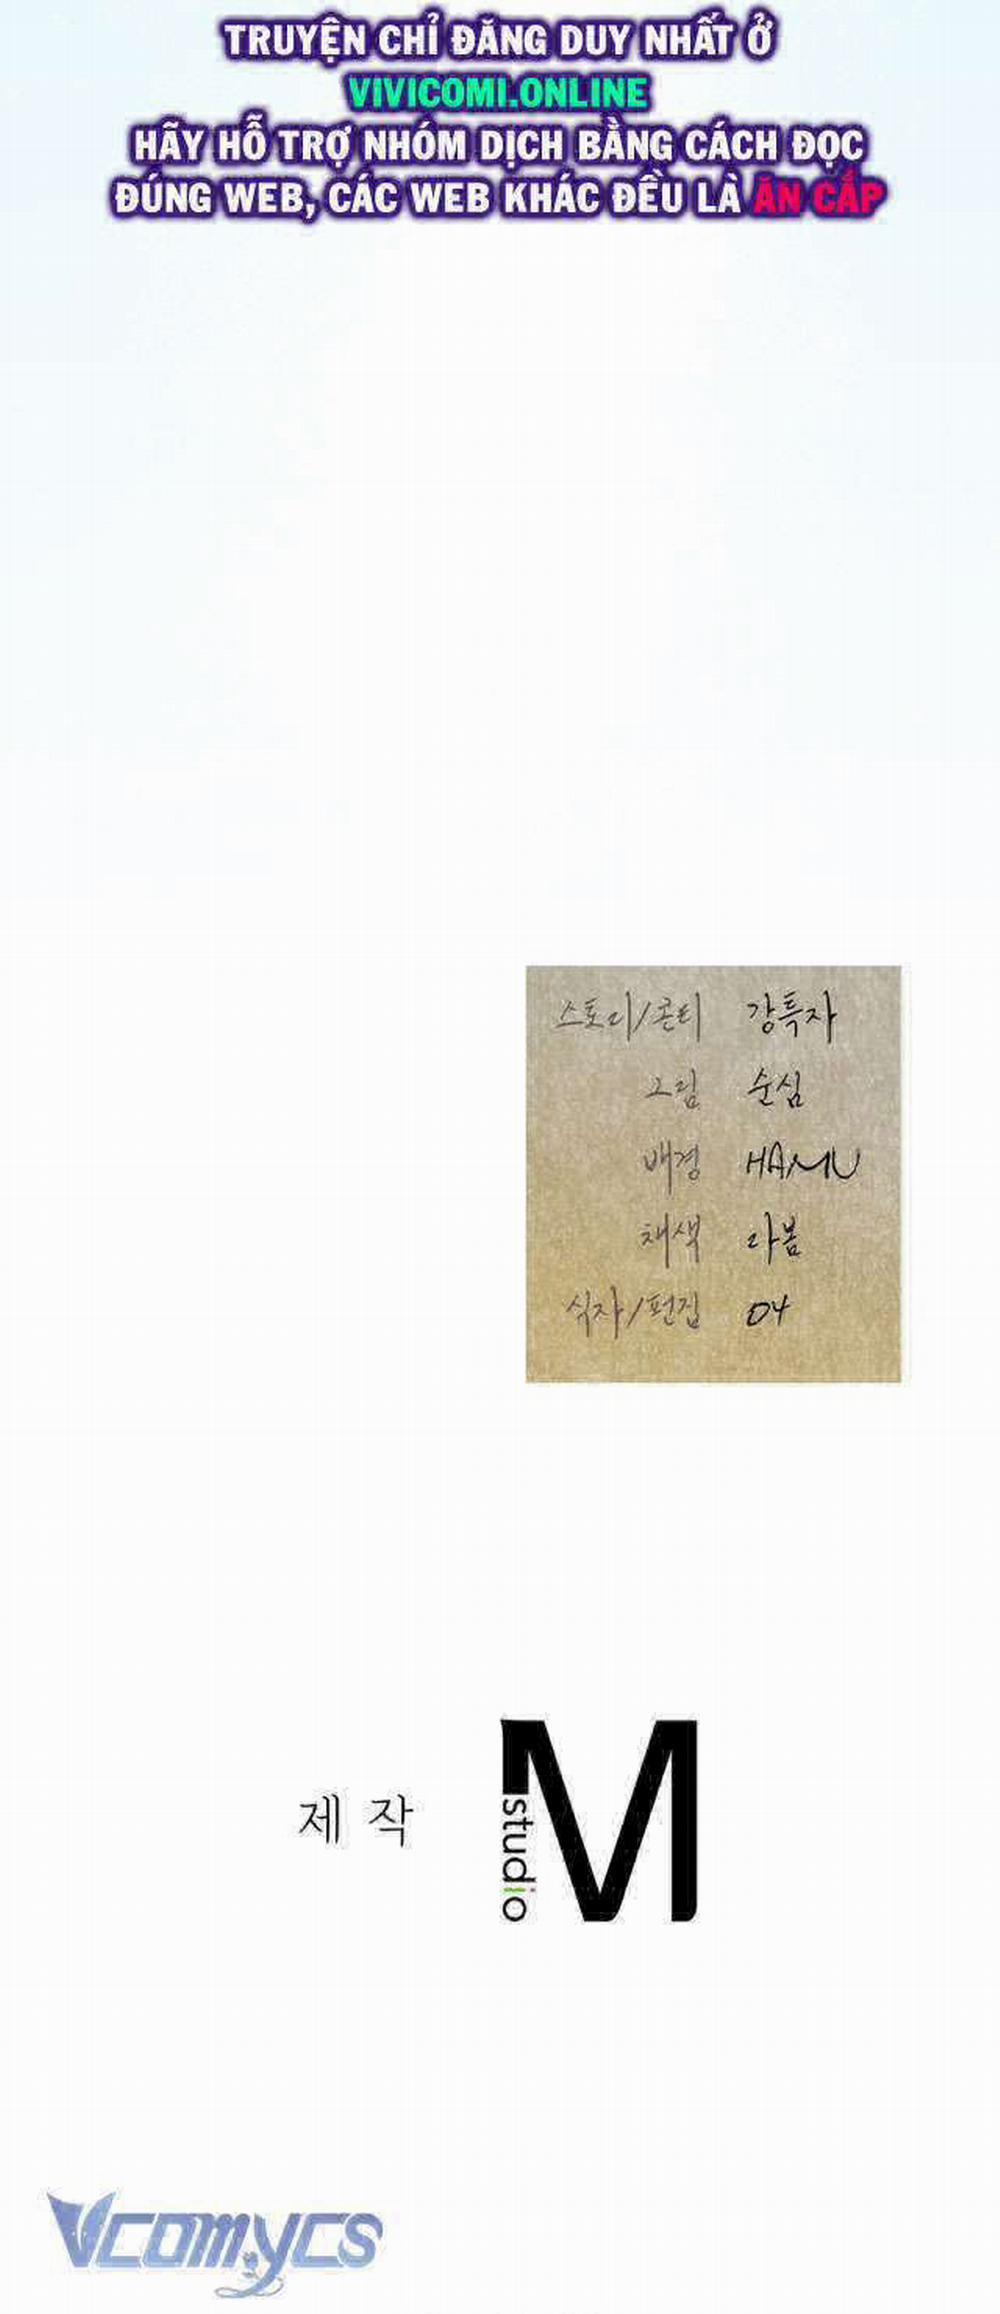 TRUYỆN CHỈ ĐĂNG DUY NHẤT Ở
VIVICOMI.ONLINE
HÃY HỖ TRỢ NHÓM DỊCH BẰNG CÁCH ĐỌC
ĐÚNG WEB, CÁC WEB KHÁC ĐỀU LÀ ĂN CẮP
스토리/콘티 강특자
그림 순심
배경 HAMU
채색 라봄
식자/편집 04
제작
M studio
Vcomycs